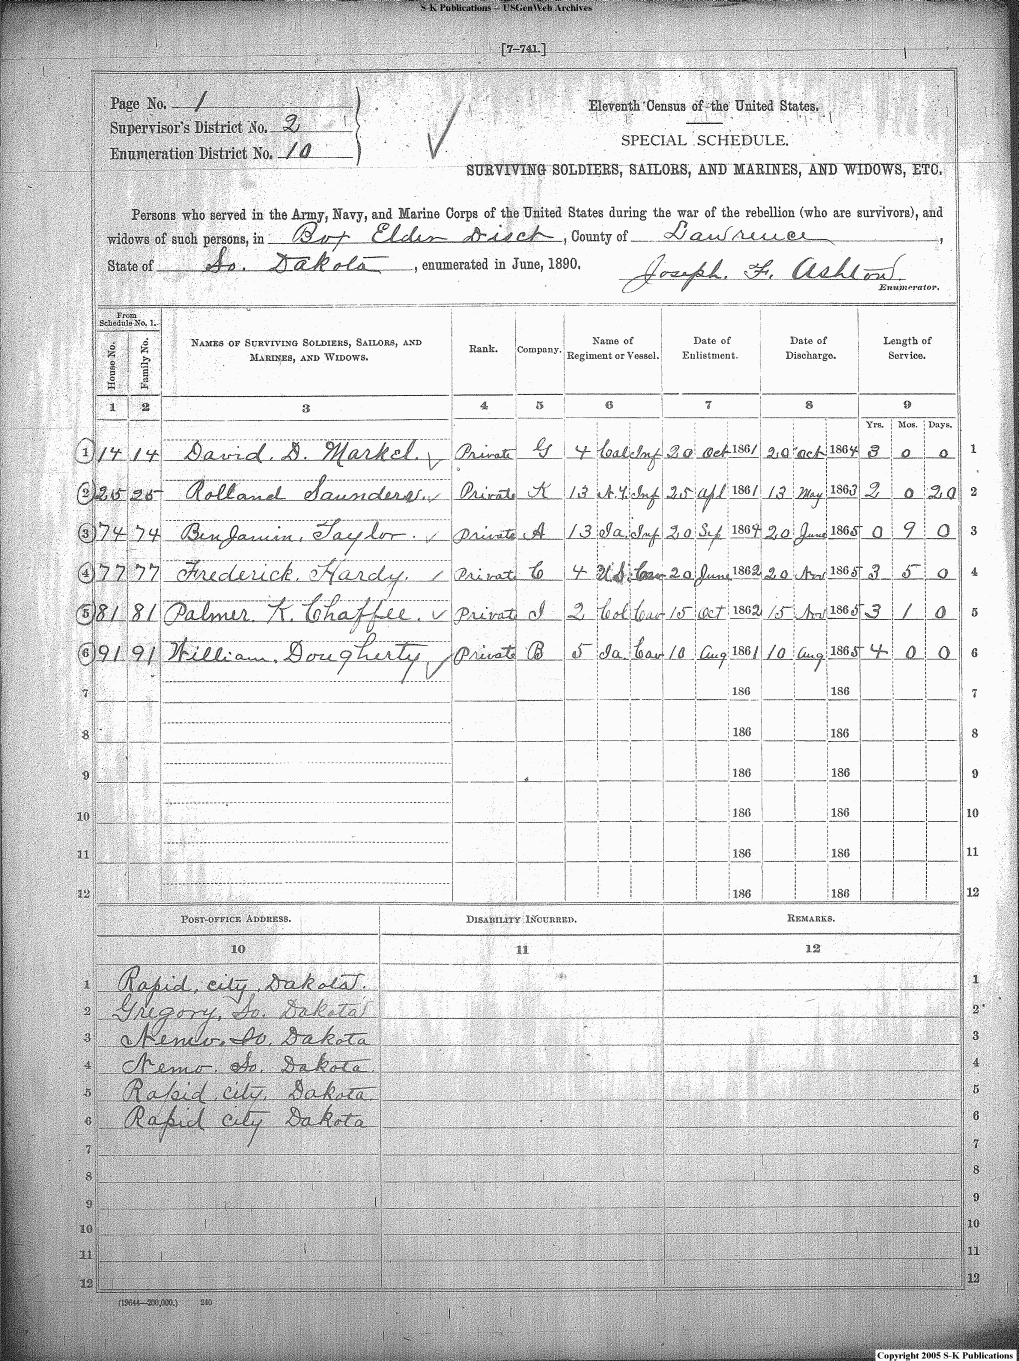 S-K Publications – USGenWeb Archives
[7–741.]
Page No. 1
Supervisor's District No. 2
Enumeration District No. 10
Eleventh Census of the United States.
SPECIAL SCHEDULE.
SURVIVING SOLDIERS, SAILORS, AND MARINES, AND WIDOWS, ETC.
Persons who served in the Army, Navy, and Marine Corps of the United States during the war of the rebellion (who are survivors), and
widows of such persons, in Box Elder Disct, County of Lawrence,
State of So. Dakota, enumerated in June, 1890.
Joseph. F. Ashton
Enumerator.
From Schedule No. 1.
House No. Family No. NAMES OF SURVIVING SOLDIERS, SAILORS, AND MARINES, AND WIDOWS. Rank. Company. Name of Regiment or Vessel. Date of Enlistment. Date of Discharge. Length of Service.
1 2 3 4 5 6 7 8 9
Yrs. Mos. Days.
1 14 14 David. D. Markel. Private G 4 Cal Inf 20 Oct 1861 20 Oct 1864 3 0 0 1
2 25 25 Rolland Saunders. Private K 13 N.Y. Inf 25 Apl 1861 13 May 1863 2 0 20 2
3 74 74 Benjamin. Taylor. Private A 13 Ia. Inf 20 Sep 1864 20 June 1865 0 9 0 3
4 77 77 Frederick. Hardy. Private C 4 U.S. Cav 20 June 1862 20 Nov 1865 3 5 0 4
5 81 81 Palmer. K. Chaffee. Private I 2 Col Cav 15 Oct 1862 15 Nov 1865 3 1 0 5
6 91 91 William. Dougherty Private B 5 Ia. Cav 10 Aug 1861 10 Aug 1865 4 0 0 6
7 186 186 7
8 186 186 8
9 186 186 9
10 186 186 10
11 186 186 11
12 186 186 12
POST-OFFICE ADDRESS. DISABILITY INCURRED. REMARKS.
10 11 12
1 Rapid, city, Dakota. 1
2 Gregory, So. Dakota 2
3 Nemo. So. Dakota 3
4 Nemo. So. Dakota. 4
5 Rapid city, Dakota. 5
6 Rapid city Dakota 6
7 7
8 8
9 9
10 10
11 11
12 12
(19644—200,000.) 240
Copyright 2005 S-K Publications